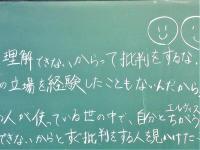 理解できないからって批判をするな。
の立場を経験したこともないんだから。
エルヴィス
の人が住んでいる世の中で、自分とちがう
できないからとすぐ批判をする人を見かけた